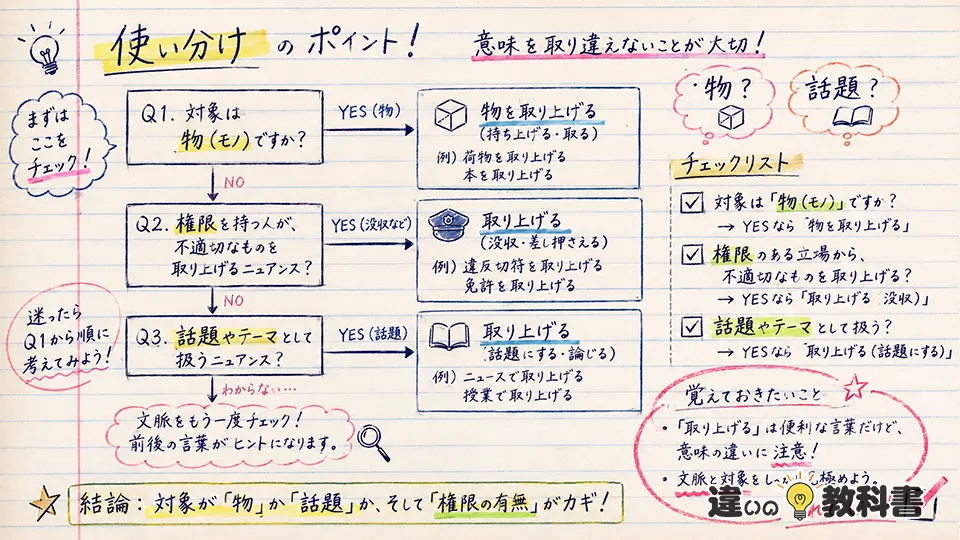 使い分け のポイント!
意味を取り違えないことが大切!
まずは
ここを
チェック!
Q1. 対象は
物(モノ)ですか?
YES(物)
物を取り上げる
(持ち上げる・取る)
例)荷物を取り上げる
本を取り上げる
NO
Q2. 権限を持つ人が、
不適切なものを
取り上げるニュアンス?
YES(没収など)
取り上げる
(没収・差し押さえる)
例)違反切符を取り上げる
免許を取り上げる
NO
迷ったら
Q1から順に
考えてみよう!
Q3. 話題やテーマとして
扱うニュアンス?
YES(話題)
取り上げる
(話題にする・論じる)
例)ニュースで取り上げる
授業で取り上げる
わからない…
文脈をもう一度チェック!
前後の言葉がヒントになります。
物?
話題?
チェックリスト
対象は「物(モノ)」ですか?
→ YESなら「物を取り上げる」
権限のある立場から、
不適切なものを取り上げる?
→ YESなら「取り上げる 没収)」
話題やテーマとして扱う?
→ YESなら「取り上げる(話題にする)」
覚えておきたいこと
・「取り上げる」は便利な言葉だけど、
意味の違いに注意!
・文脈と対象をしっかり極めよう。
結論:対象が「物」か「話題」か、そして「権限の有無」がカギ!
違いの教科書